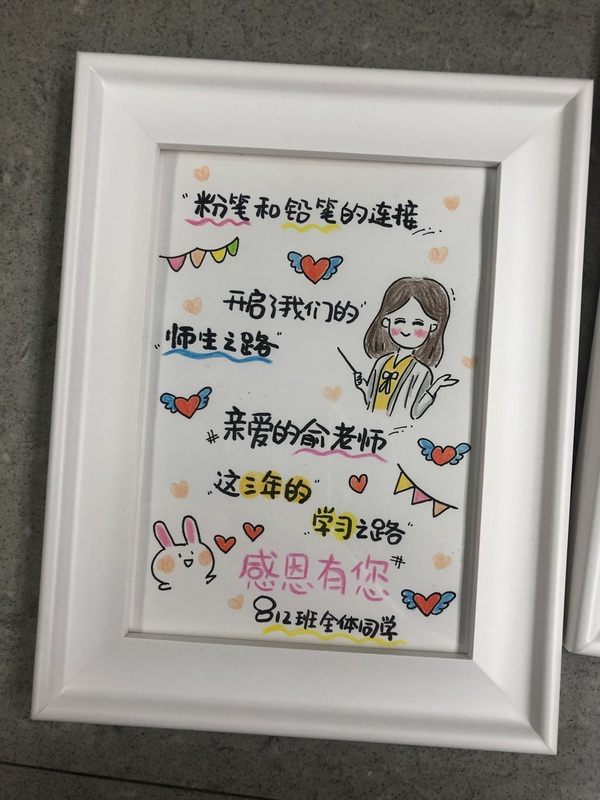 "粉笔和铅笔的连接
开启了我们的"
"师生之路"
#亲爱的俞老师
"这三年的"
"学习之路"
感恩有您#
812班全体同学